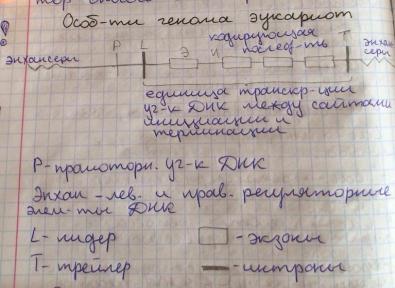 Особ-ти генома эукариот
кодирующая
послед-ть
энхансеры P L Э И T энхан-
серы
единица транскр-ции
уч-к ДНК между сайтами
инициации и
терминации
P-промоторн. уч-к ДНК
Энхан-лев. и прав. регуляторные
элем-ты ДНК
L-лидер - экзоны
T-трейлер - интроны